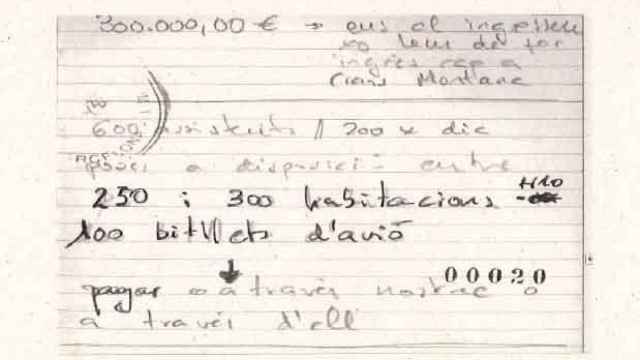 300.000,00 € → ens el ingressen
no hem de fer
ingrés cap a
Ciais Montane
600 assistents // 200 x dia
a disposició entre
250 i 300 habitacions H10
100 bitllets d'avió
00020
pagar a través nostre o
a través d'ell